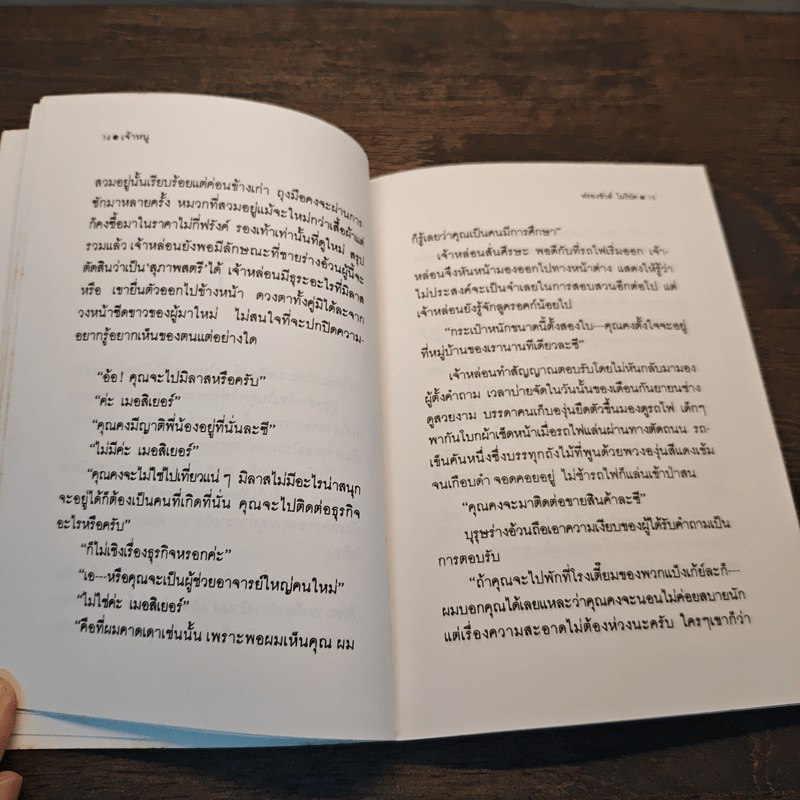 ๑๔ ● เจ้าหนู
สวมอยู่นั้นเรียบร้อยแต่ค่อนข้างเก่า ถุงมือคงจะผ่านการ-
ซักมาหลายครั้ง หมวกที่สวมอยู่แม้จะใหม่กว่าเสื้อผ้าแต่
ก็คงซื้อมาในราคาไม่กี่ฟรังค์ รองเท้าเท่านั้นที่ดูใหม่ สรุป
รวมแล้ว เจ้าหล่อนยังพอมีลักษณะที่ชายร่างอ้วนผู้นี้จะ
ตัดสินว่าเป็น‘สุภาพสตรี’ได้ เจ้าหล่อนมีธุระอะไรที่มิลาส
หรือ เขายื่นตัวออกไปข้างหน้า ดวงตาทั้งคู่มิได้ละจาก
วงหน้าซีดขาวของผู้มาใหม่ ไม่สนใจที่จะปกปิดความ-
อยากรู้อยากเห็นของตนแต่อย่างใด
“อ้อ! คุณจะไปมิลาสหรือครับ”
“ค่ะ เมอสิเยอร์”
“คุณคงมีญาติพี่น้องอยู่ที่นั่นละซี”
“ไม่มีค่ะ เมอสิเยอร์”
“คุณคงจะไม่ใช่ไปเที่ยวแน่ ๆ มิลาสไม่มีอะไรน่าสนุก
จะอยู่ได้ก็ต้องเป็นคนที่เกิดที่นั่น คุณจะไปติดต่อธุรกิจ
อะไรหรือครับ”
“ก็ไม่เชิงเรื่องธุรกิจหรอกค่ะ”
“เอ---หรือคุณจะเป็นผู้ช่วยอาจารย์ใหญ่คนใหม่”
“ไม่ใช่ค่ะ เมอสิเยอร์”
“คือที่ผมคาดเดาเช่นนั้น เพราะพอผมเห็นคุณ ผม
ฟรองซัวส์ โมริยัค ● ๑๕
ก็รู้เลยว่าคุณเป็นคนมีการศึกษา”
เจ้าหล่อนสั่นศีรษะ พอดีกับที่รถไฟเริ่มออก เจ้า-
หล่อนจึงหันหน้ามองออกไปทางหน้าต่าง แสดงให้รู้ว่า
ไม่ประสงค์จะเป็นจำเลยในการสอบสวนอีกต่อไป แต่
เจ้าหล่อนยังรู้จักลูครอคก์น้อยไป
“กระเป๋าหนักขนาดนี้ตั้งสองใบ---คุณคงตั้งใจจะอยู่
ที่หมู่บ้านของเรานานทีเดียวละซี”
เจ้าหล่อนทำสัญญาณตอบรับโดยไม่หันกลับมามอง
ผู้ตั้งคำถาม เวลาบ่ายจัดในวันนั้นของเดือนกันยายนช่าง
ดูสวยงาม บรรดาคนเก็บองุ่นยืดตัวขึ้นมองดูรถไฟ เด็กๆ
พากันโบกผ้าเช็ดหน้าเมื่อรถไฟแล่นผ่านทางตัดถนน รถ-
เข็นคันหนึ่งซึ่งบรรทุกถังไม้ที่พูนด้วยพวงองุ่นสีแดงเข้ม
จนเกือบดำ จอดคอยอยู่ ไม่ช้ารถไฟก็แล่นเข้าป่าสน
“คุณคงจะมาติดต่อขายสินค้าละซี”
บุรุษร่างอ้วนถือเอาความเงียบของผู้ได้รับคำถามเป็น
การตอบรับ
“ถ้าคุณจะไปพักที่โรงเตี๊ยมของพวกแบ็งเก้ย์ละก็---
ผมบอกคุณได้เลยแหละว่าคุณคงจะนอนไม่ค่อยสบายนัก
แต่เรื่องความสะอาดไม่ต้องห่วงนะครับ ใครๆเขาก็ว่า